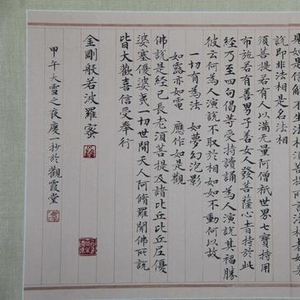 說即非法相是名法相
須菩提若有人以滿無量阿僧祇世界七寶持用
布施若有善男子善女人發菩薩心者持於此
經乃至四句偈等受持讀誦為人演說其福勝
彼云何為人演說不取於相如如不動何以故
一切有為法 如夢幻泡影
如露亦如電 應作如是觀
佛說是經已長老須菩提及諸比丘比丘尼優
婆塞優婆夷一切世間天人阿修羅聞佛所說
皆大歡喜信受奉行
金剛般若波羅蜜
甲午大雪之夜慶一抄於觀霞堂